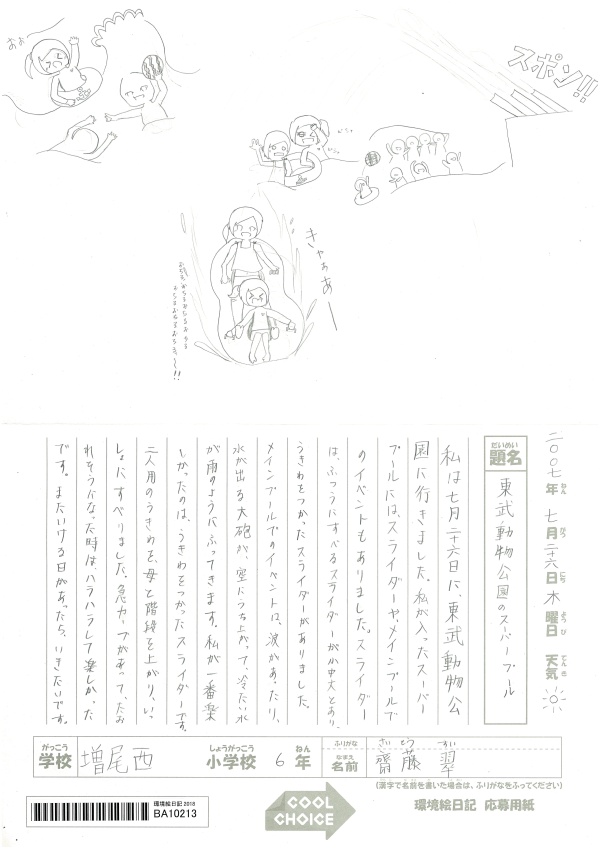 おぉ
スポン!!
きゃぁあー
二〇〇七年 七月二十六日 木曜日 天気
ねん がつ にち ようび てんき
だいめい
題名
東武動物公園のスーパープール
私は七月二十六日に、東武動物公
園に行きました。私が入ったスーパー
プールには、スライダーや、メインプールで
のイベントもありました。スライダー
は、ふつうにすべるスライダーが小中大とあり、
うきわをつかったスライダーがありました。
メインプールでのイベントは、波があったり、
水が出る大砲が、空にうち上がって、冷たい水
が雨のようにふってきます。私が一番楽
しかったのは、うきわをつかったスライダーです。
二人用のうきわを、母と階段を上がり、いっ
しょにすべりました。急カーブがあって、たお
れそうになった時は、ハラハラして楽しかった
です。またいける日があったら、いきたいです。
がっこう しょうがっこう ねん ふりがな さい とう すい
学校 増尾西 小学校 6年 なまえ 名前 齋藤 翠
(漢字で名前を書いた場合は、ふりがなをふってください)
環境絵日記 2018
BA10213
COOL
CHOICE
環境絵日記 応募用紙